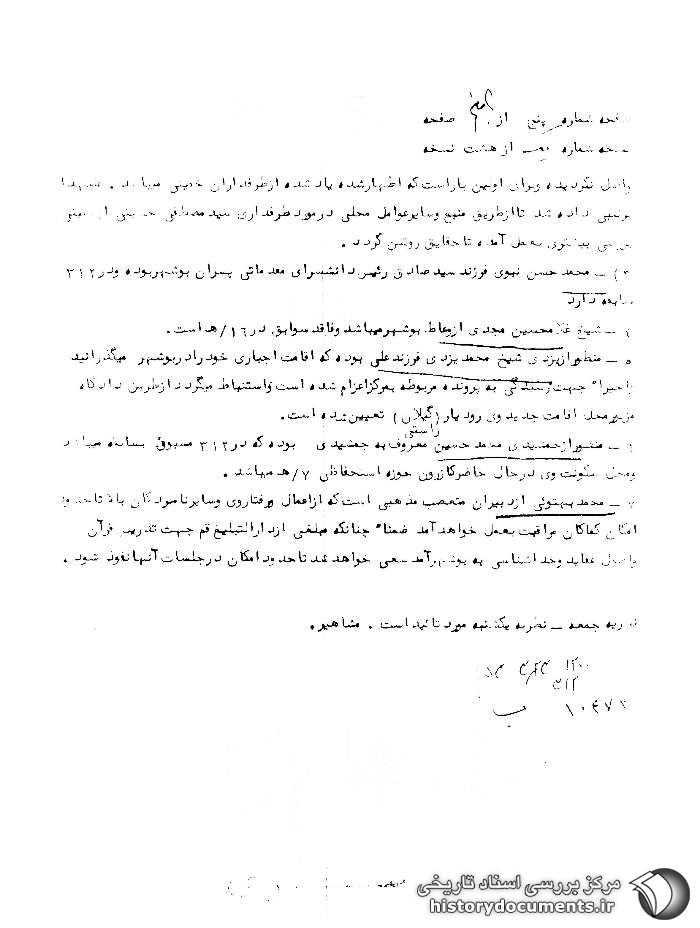 صفحه شماره پنج از صفحه
نسخه شماره از هشت نسخه
واصل نگردیده وبرای اولین باراست که اظهارشده یاد شده ازطرفداران خمینی میباشد . معهذا
ترتیبی داده شد تا ازطریق منبع وسایرعوامل محلی درمورد طرفداری سید مصطفی حسینی از خمینی
بررسی بیشتری بعمل آمده تا حقایق روشن گردد .
۳) ـ محمد حسن نبوی فرزند سید صادق رئیس دانشسرای مقدماتی پسران بوشهربوده ودر ۳۱۲
سابقه دارد
ـ شیخ غلامحسین مجدی ازوعاظ بوشهرمیباشد وفاقد سوابق در ۱۶/ ه‍ است .
۵ ـ منظورازیزدی شیخ محمد یزدی فرزند علی بوده که اقامت اجباری خود رادربوشهر میگذرانید
واخیرا" جهت رسیدگی به پرونده مربوطه بمرکزاعزام شده است واستنباط میگردد ازطریق دادگاه
مزبورمحل اقامت جدید وی رودبار (گیلان) تعیین شده است .
۶ ـ منظورازجمشیدی محمد حسین راستی معروف به جمشیدی بوده که در ۳۱۲ مسبوق بسابقه میباشد
ومحل سکونت وی درحال حاضرکازرون حوزه استحفاظی ۷/ ه‍ میباشد .
۷ ـ محمد بهتوئی ازدبیران متعصب مذهبی است که ازاعمال ورفتاروی وسایرنامبردگان بالا تاحدود
امکان کماکان مراقبت بعمل خواهد آمد ضمنا" چنانکه مبلغی ازدارالتبلیغ قم جهت تدریس قرآن
واصول عقاید وخداشناسی به بوشهرآمد سعی خواهد شد تاحدود امکان درجلسات آنها نفوذ شود .
نظریه جمعه ـ نظریه یکشنبه مورد تائید است . مشاهیر .
۳۱۲
۱۰۴۷۲
مرکز بررسی اسناد تاریخی
historydocuments.ir